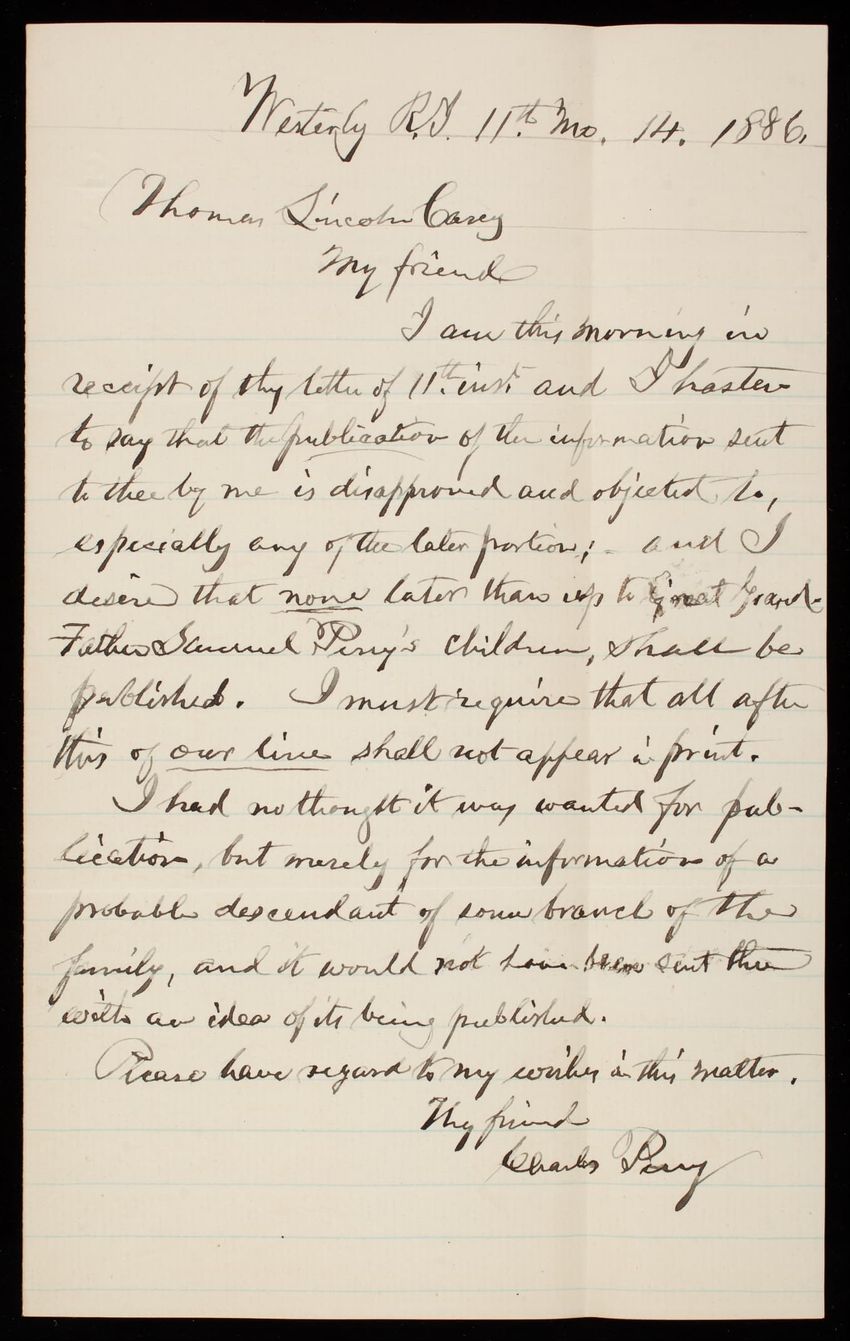 Westerly R.I. 11th. Mo. 14. 1886.
Thomas Lincoln Casey
My friend
I am this morning in
receipt of thy letter of 11th. inst. and I hasten
to say that the publication of the information sent
to thee by me is disapproved and objected to,
especially any of the later portion; - and I
desire that none later than up to Great Grand-
Father Samuel Perry's children, shall be
published. I must require that all after
this of our line shall not appear in print.
I had no thought it was wanted for pub-
lication, but merely for the information of a
probable descendant of some branch of the
family, and it would not have been sent thee
with an idea of its being published.
Please have regard to my wishes in this matter.
Thy friend
Charles Perry